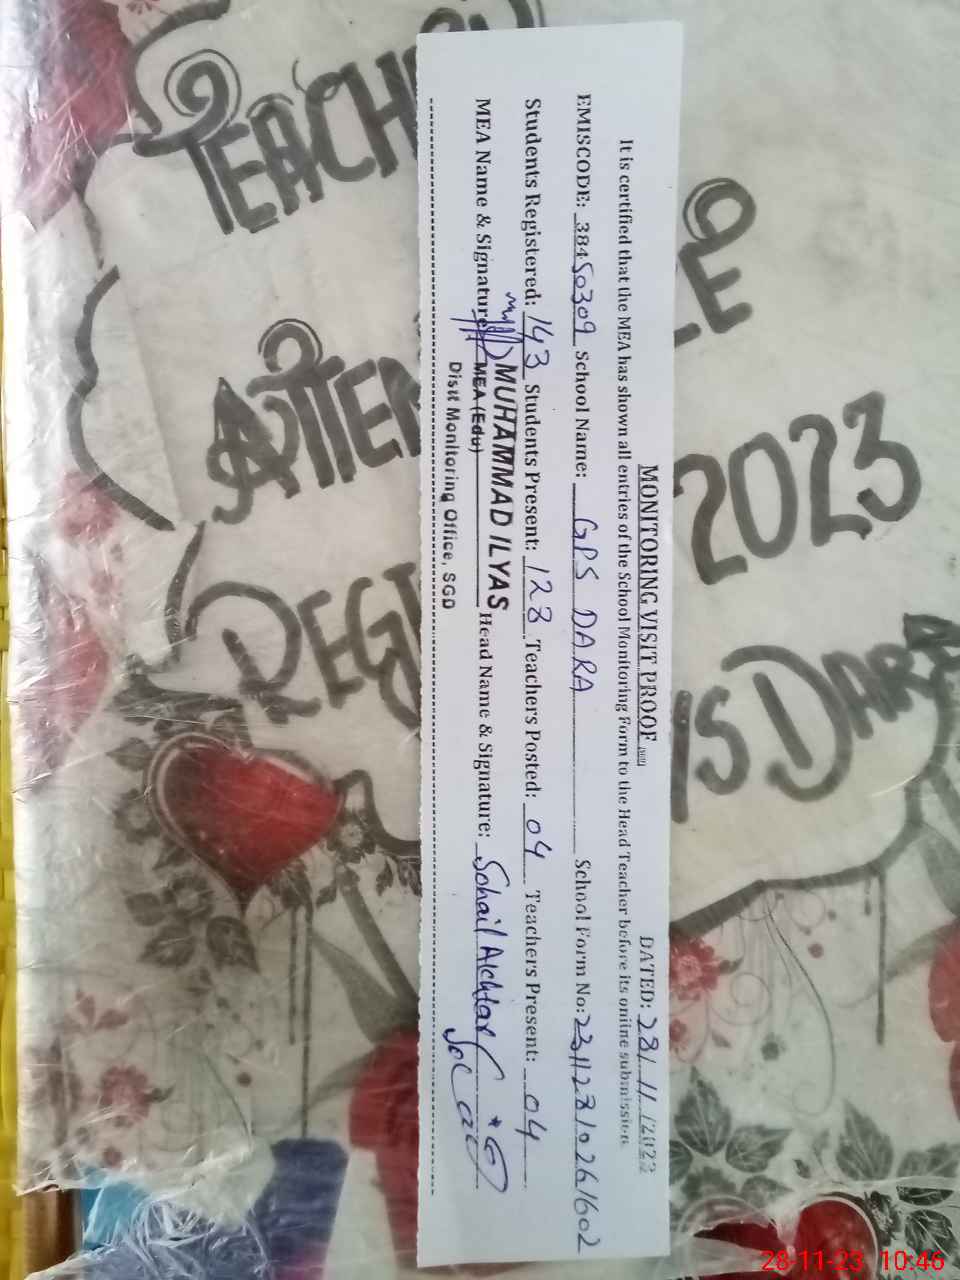 MONITORING VISIT PROOF
DATED: 28/11/2023
It is certified that the MEA has shown all entries of the School Monitoring Form to the Head Teacher before its online submission.
EMISCODE: 38450309 School Name: GPS DARA School Form No: 23112810261602
Students Registered: 143 Students Present: 123 Teachers Posted: 04 Teachers Present: 04
MEA Name & Signature: MUHAMMAD ILYAS Head Name & Signature: Sohail Akhtar
MEA (Edu)
Distt Monitoring Office, SGD
TEACH
ATTEN CE
REGI 2023
PS DARA
28-11-23 10:46